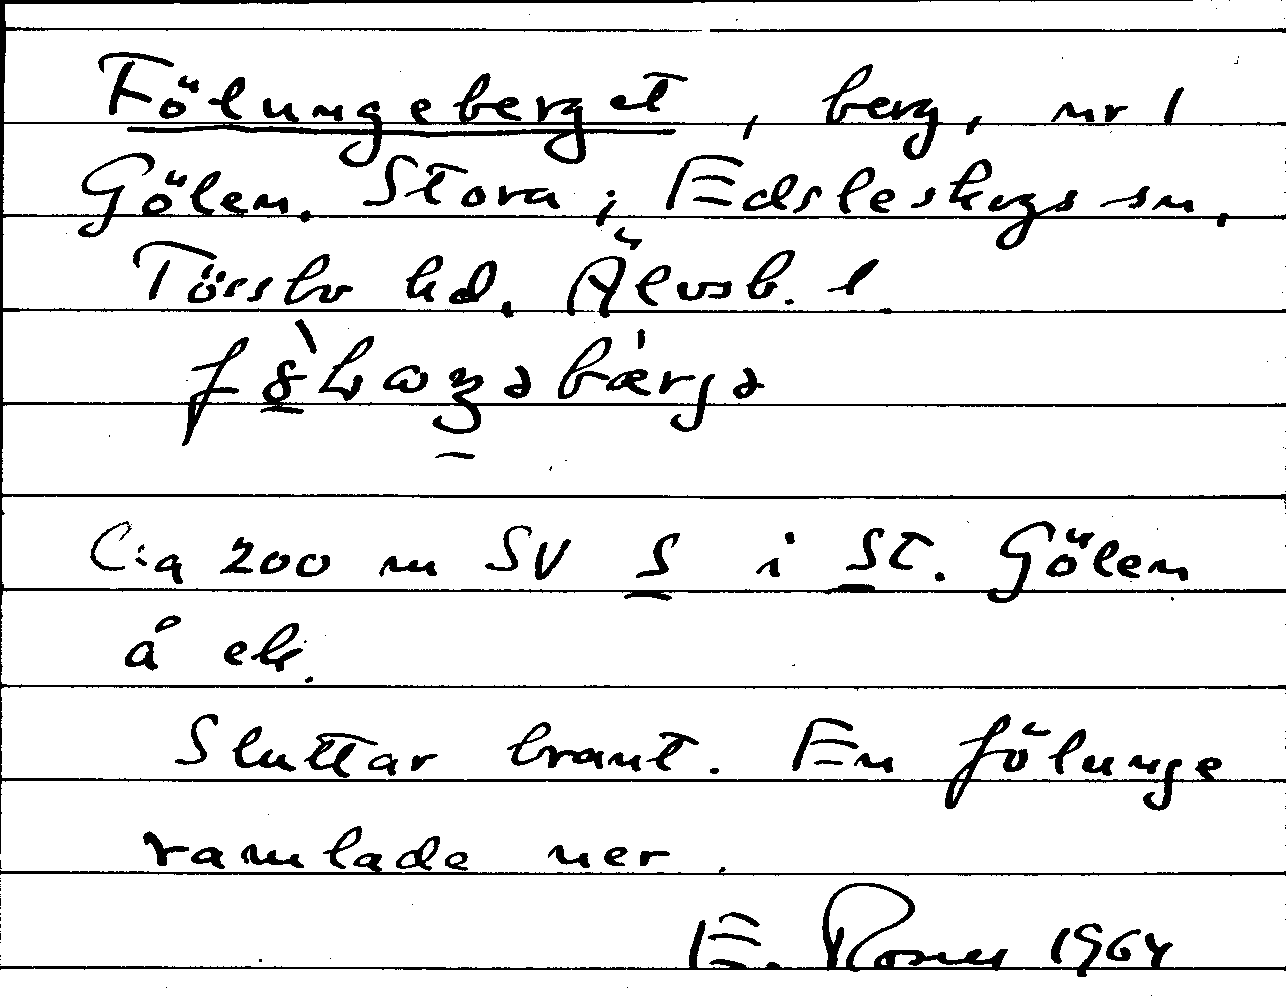 Fölungeberget, berg, nr 1
Gölen. Stora; Edsleskogs sn,
Tössbo hd. Älvsb. l
Ca 200 m SV S i St. Gölen
å ek.
Sluttar brant. En fölunge
ramlade ner.
E. Rosner 1964